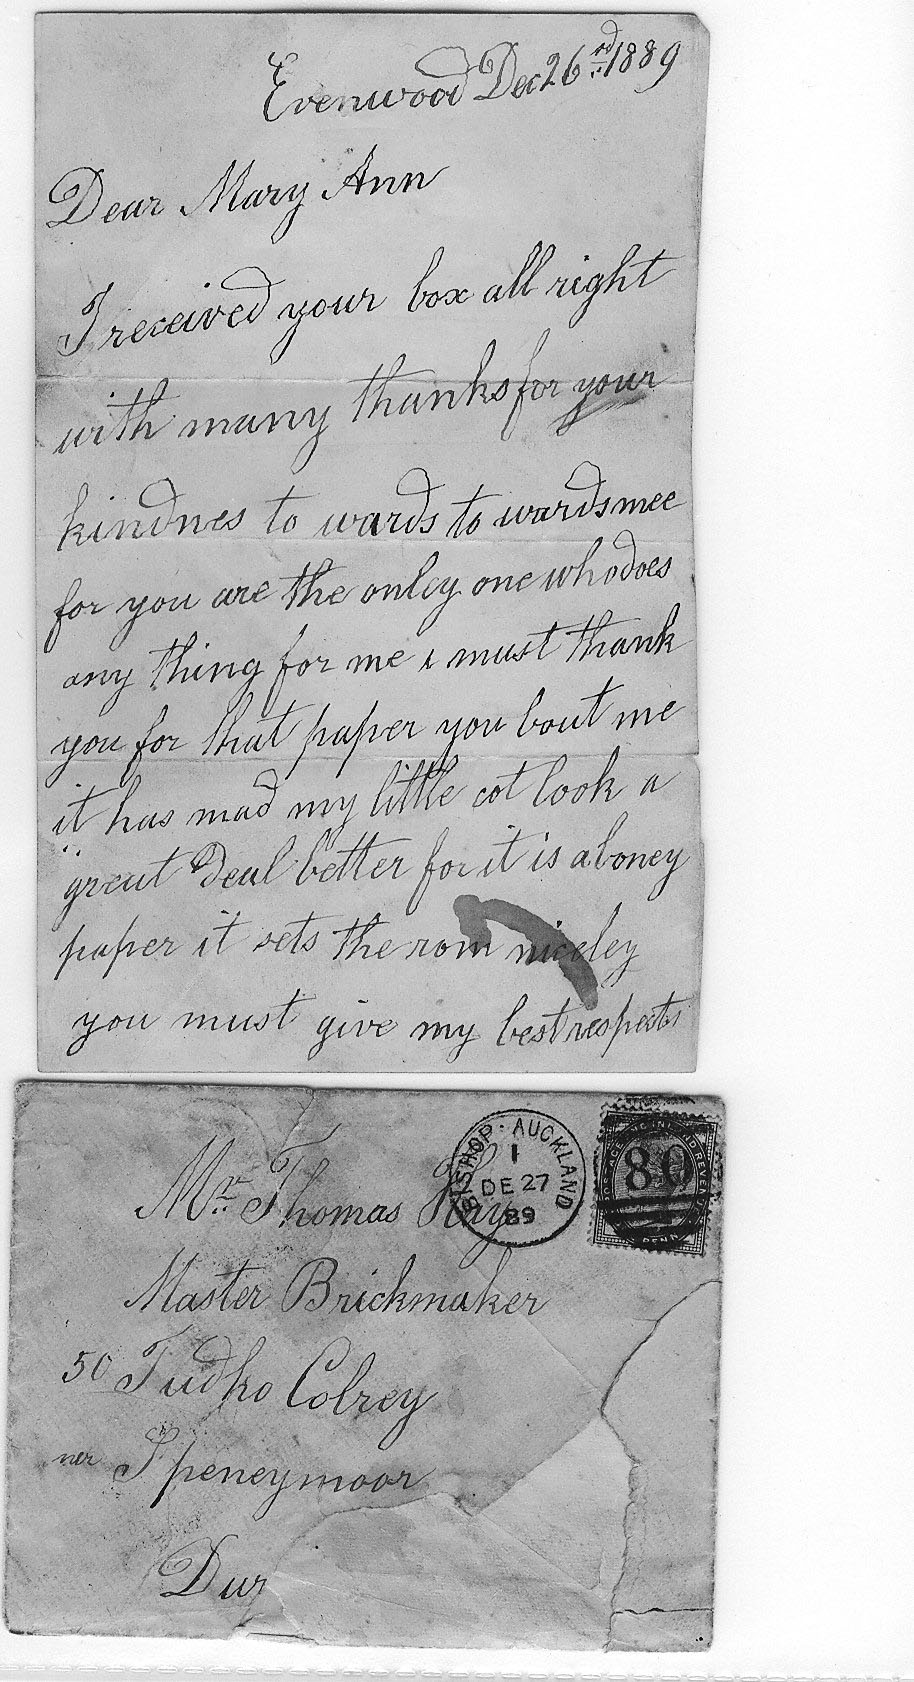 Evenwood Dec 26rd 1889
Dear Mary Ann
I received your box all right
with many thanks for your
kindnes to wards to wards mee
for you are the onley one who does
any thing for me i must thank
you for that paper you bout me
it has mad my little cot look a
great Deal better for it is a boney
paper it sets the rom niceley
you must give my best respects
BISHOP · AUCKLAND
1
DE 27
89
80
POSTAGE AND INLAND REVENUE
PENNY
Mr Thomas Hay
Master Brickmaker
50 Tudho Colrey
ner Speneymoor
Dur